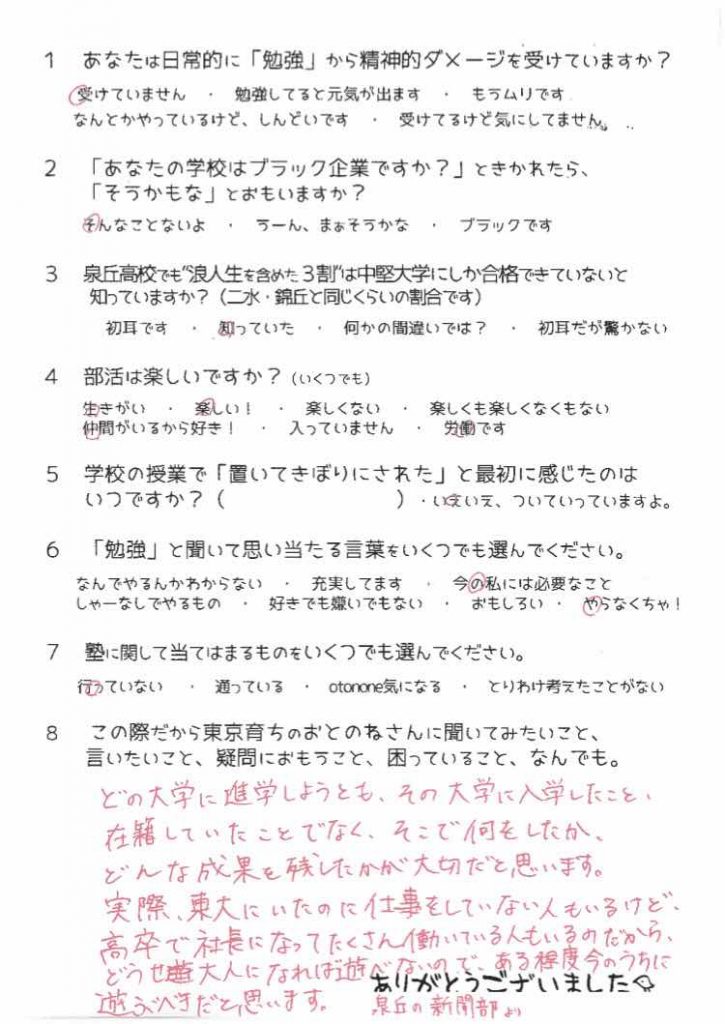 1 あなたは日常的に「勉強」から精神的ダメージを受けていますか？
受けていません ・ 勉強してると元気が出ます ・ もうムリです
なんとかやっているけど、しんどいです ・ 受けてるけど気にしてません。
2 「あなたの学校はブラック企業ですか？」ときかれたら、
「そうかもな」とおもいますか？
そんなことないよ ・ うーん、まぁそうかな ・ ブラックです
3 泉丘高校でも“浪人生を含めた３割”は中堅大学にしか合格できていないと
知っていますか？（二水・錦丘と同じくらいの割合です）
初耳です ・ 知っていた ・ 何かの間違いでは？ ・ 初耳だが驚かない
4 部活は楽しいですか？（いくつでも）
生きがい ・ 楽しい！ ・ 楽しくない ・ 楽しくも楽しくなくもない
仲間がいるから好き！ ・ 入っていません ・ 労働です
5 学校の授業で「置いてきぼりにされた」と最初に感じたのは
いつですか？（ ）・いえいえ、ついていっていますよ。
6 「勉強」と聞いて思い当たる言葉をいくつでも選んでください。
なんでやるんかわからない ・ 充実してます ・ 今の私には必要なこと
しゃーなしでやるもの ・ 好きでも嫌いでもない ・ おもしろい ・ やらなくちゃ！
7 塾に関して当てはまるものをいくつでも選んでください。
行っていない ・ 通っている ・ otonone気になる ・ とりわけ考えたことがない
8 この際だから東京育ちのおとのねさんに聞いてみたいこと、
言いたいこと、疑問におもうこと、困っていること、なんでも。
どの大学に進学しようとも、その大学に入学したこと、
在籍していたことでなく、そこで何をしたか、
どんな成果を残したかが大切だと思います。
実際、東大にいたのに仕事をしていない人もいるけど、
高卒で社長になってたくさん働いている人もいるのだから、
どうせ大人になれば遊べないので、ある程度今のうちに
遊ぶべきだと思います。
ありがとうございました
泉丘の新聞部より